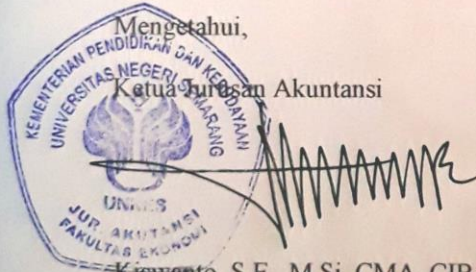 Mengetahui,
Ketua Jurusan Akuntansi
KEMENTERIAN PENDIDIKAN DAN KEBUDAYAAN
UNIVERSITAS NEGERI SEMARANG
UNNES
JUR. AKUTANSI
FAKULTAS EKONOMI
Kiswanto, S.E., M.Si, CMA, CIB